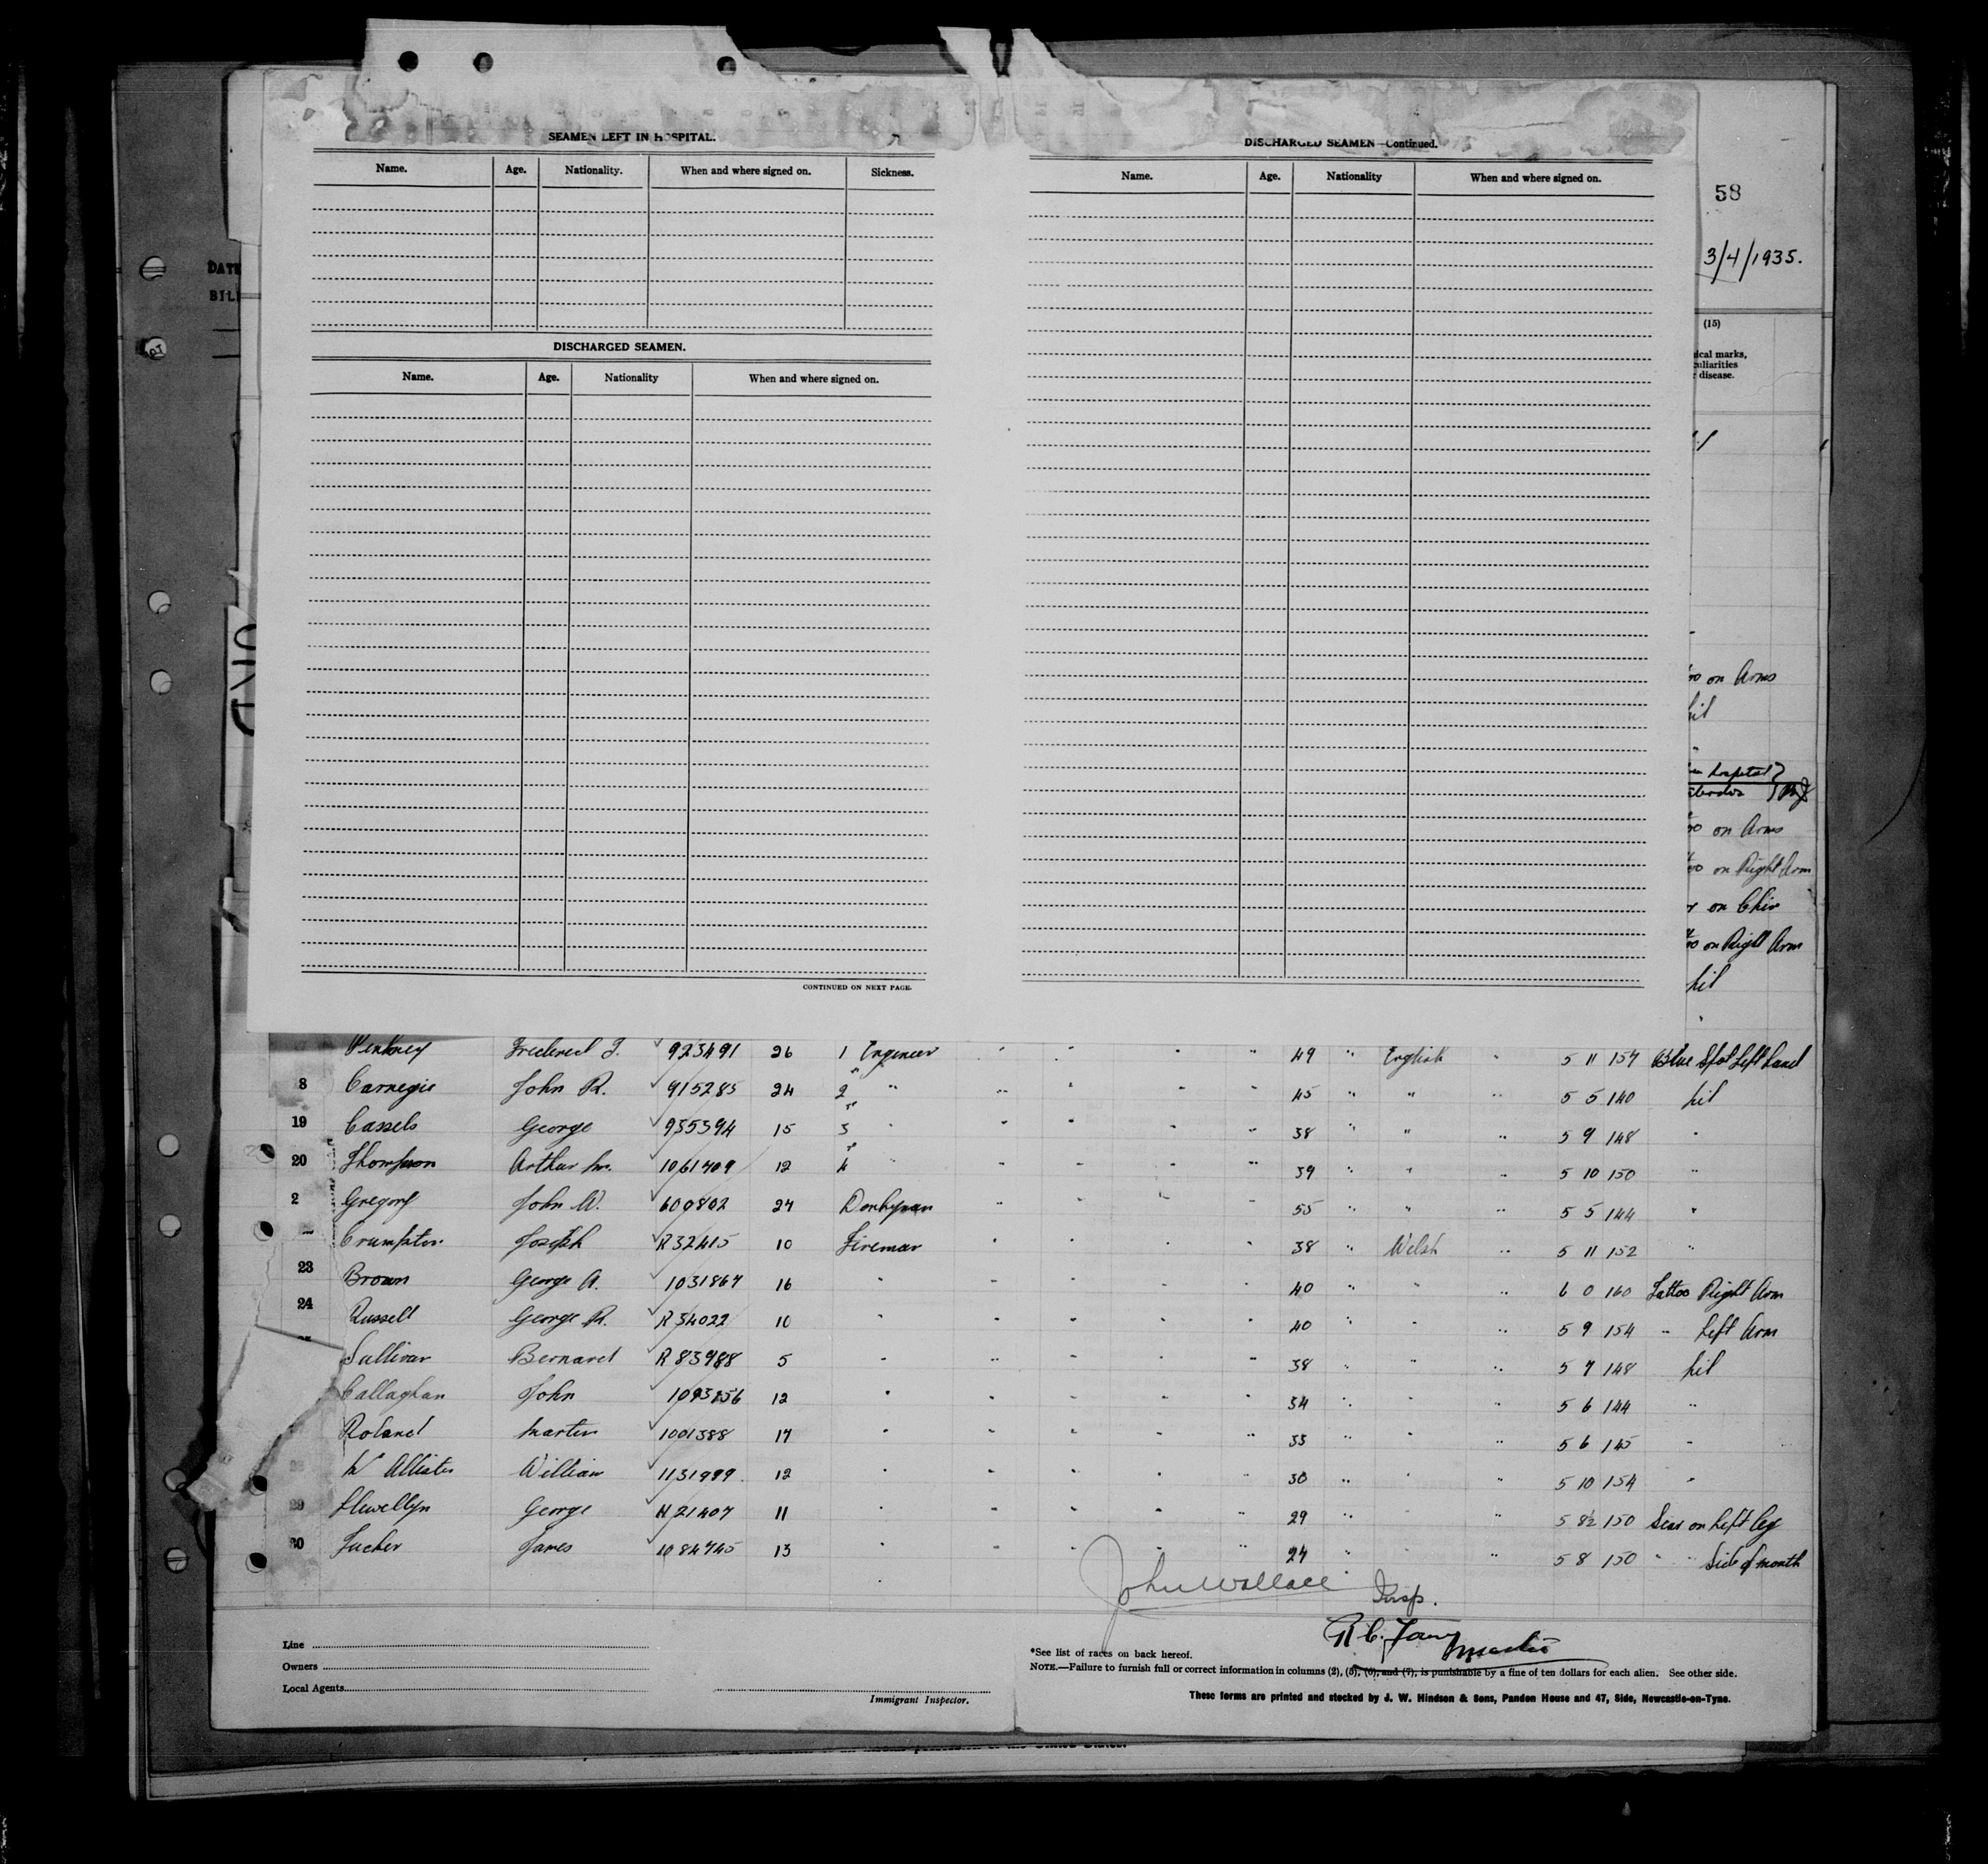 SEAMEN LEFT IN HOSPITAL.
Name. Age. Nationality. When and where signed on. Sickness.
DISCHARGED SEAMEN.
Name. Age. Nationality When and where signed on.
CONTINUED ON NEXT PAGE.
DISCHARGED SEAMEN—Continued.
Name. Age. Nationality When and where signed on.
58
3/4/1935.
DATE
BIL
(15)
ical marks,
culiarities
r disease.
on Arms
hil
in hospital
on Arms
on Right Arm
on Chin
on Right Arm
hil
Frederick J. 923491 26 1 Engineer " " " " 49 " English " 5 11 157 Blue Spot Left hand
8 Carnegie John R. 915285 24 2 " " " " " 45 " " " 5 5 140 hil
19 Cassels George 935394 15 3 " " " " " 38 " " " 5 9 148 "
20 Thompson Arthur 1061709 12 4 " " " " " 39 " " " 5 10 150 "
2 Gregory John W. 600802 24 Donkeyman " " " " 55 " " " 5 5 144 "
Crumpton Joseph R32415 10 Fireman " " " " 38 " Welsh " 5 11 152 "
23 Brown George A. 1031867 16 " " " " " 40 " " " 6 0 160 Tattoo Right Arm
24 Russell George R. R 34022 10 " " " " " 40 " " " 5 9 154 " Left Arm
Sullivan Bernard R 83988 5 " " " " " 38 " " " 5 7 148 hil
Callaghan John 12 " " " " " 34 " " " 5 6 144 "
Roland Martin 1001388 17 " " " " " 33 " " " 5 6 145 "
Allister William 12 " " " " " 30 " " " 5 10 154 "
29 Llewellyn George 11 " " " " " 29 " " " 5 8½ 150 Scar on Left leg
30 Tucker James 1084745 13 " " " " " 24 " " " 5 8 150 " " Side of mouth
John Wallace Insp.
R C.
Master
Line
Owners
Local Agents
Immigrant Inspector.
*See list of races on back hereof.
NOTE.—Failure to furnish full or correct information in columns (2), (5), (6), and (7), is punishable by a fine of ten dollars for each alien. See other side.
These forms are printed and stocked by J. W. Hindson & Sons, Pandon House and 47, Side, Newcastle-on-Tyne.